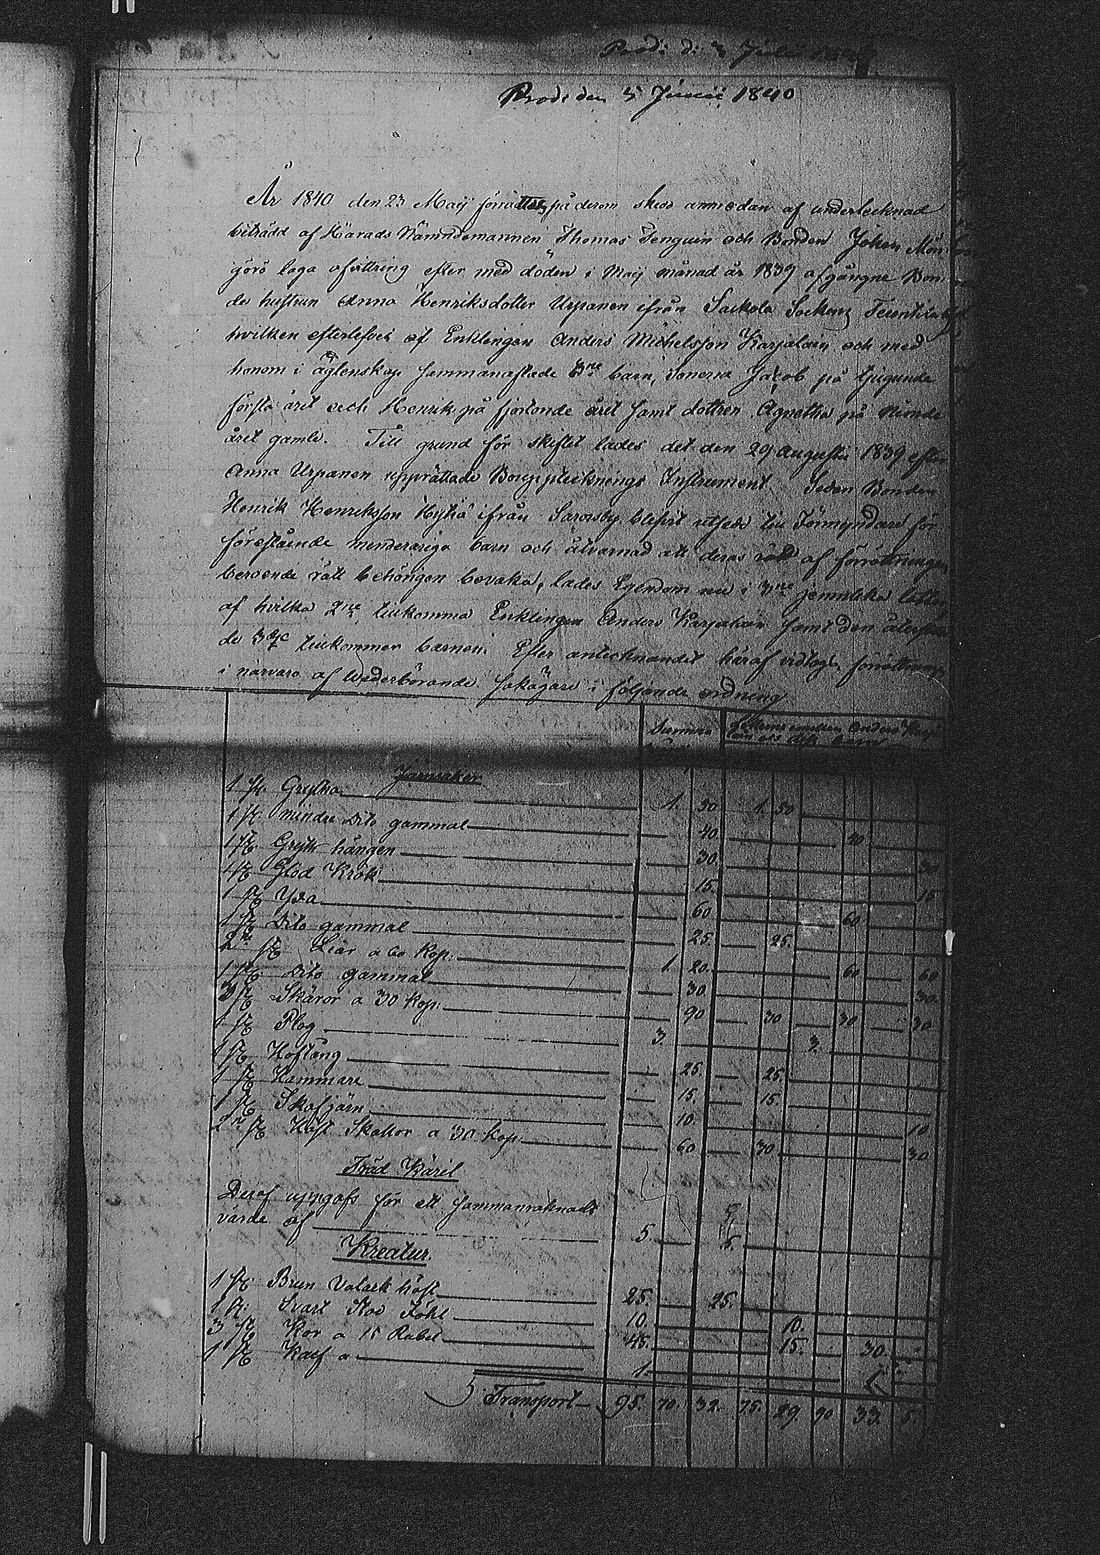 Prod. d. Julii
Prod. den 5 Junii 1840
År 1840 den 23 Maij förrättades på derom skedd anmodan af undertecknad
biträdd af Härads Nämndemannen Thomas och Bonden Johan
laga afvittring efter med döden i Maij månad år 1839 afgångne Bon-
de hustrun Anna Henriksdotter Urpanen ifrån Sackola Socken
hvilken efterlefves af Enklingen Anders Michelsson Karjalain och med
honom i ägtenskap sammanaflade 3ne barn, sönerne Jacob på tjugunde
första året och Henrik på fjortonde året samt dottren Agnetha på nionde
året gamle. Till grund för skiftet lades det den 29 Augusti 1839 efter
Anna Urpanen upprättade Bouppteknings Instrument. Sedan Bonden
Henrik Henriksson ifrån blifvit utsedd till Förmyndare för
förestående menderåriga barn och åtvarnad att deras rätt af förrättningen
beroende rätt behörigen bevaka, lades Egendomen i 3ne jemnlika lotter
af hvilka 2ne tillkomma Enklingen Anders Karjalain samt den
de 3dje tillkommer barnen. Efter antecknandet häraf vidtogs förrättningen
i närvaro af wederbörande sakägare i följande ordning.
Summa
Jernsaker
1 st. Grytka 1. 50. 1. 50
1 st. mindre Dito gammal 40. 40
1 st. Gryth hängen 30. 30
1 st. Glöd Krok 15. 15
1 st. Yxa 60. 60
1 st. Dito gammal 25. 25.
2ne st. Liar a 60 kop. 1. 20. 60 60
1 st. Dito gammal 30. 30
3 st. Skäror a 30 kop. 90 30 30 30
1 st. Plog 3. 3.
1 st. Hoftång 25. 25.
1 st. Hammare 15. 15.
1 st. Skafjärn 10. 10
2ne st. a 30 kop. 60 30 30
Träd Käril
Deraf uppgafs för ett sammanräknadt
värde af 5 5.
Kreatur
1 st. Brun Valack häst 25. 25.
1 st. Svart Sto Föhl 10. 10.
3 st. Kor a 15 Rubel 45. 15. 30.
1 st. Kalf a 1. 1.
Transport 95. 70. 32. 75. 29. 90 33. 5.